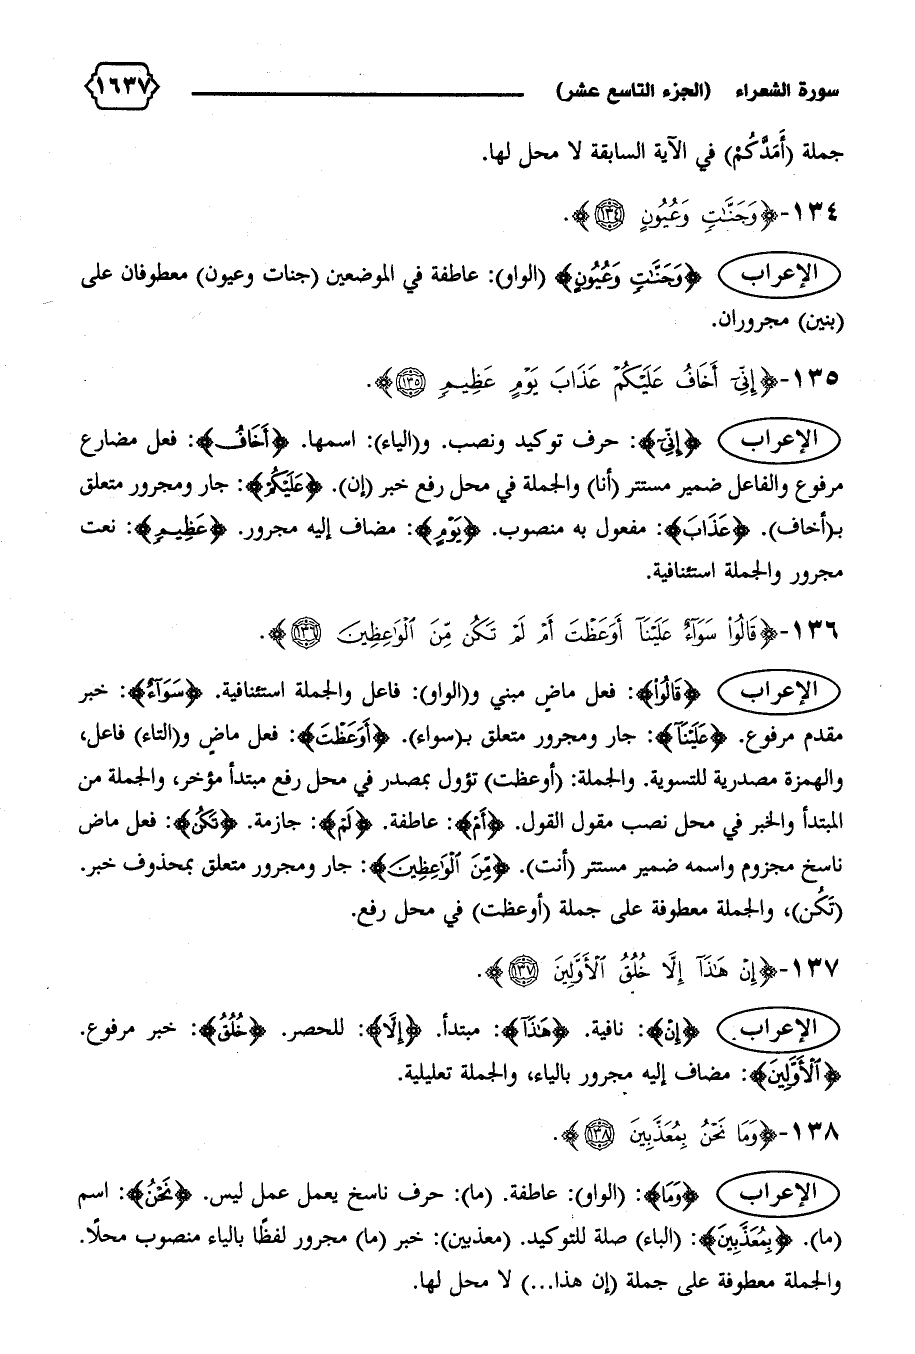 سورة الشعراء (الجزء التاسع عشر) ١٦٣٧
جملة (أَمَدَّكُمْ) في الآية السابقة لا محل لها.
١٣٤-﴿وَجَنَّٰتٖ وَعُيُونٍ ١٣٤﴾.
الإعراب ﴿وَجَنَّٰتٖ وَعُيُونٍ﴾ (الواو): عاطفة في الموضعين (جنات وعيون) معطوفان على
(بنين) مجروران.
١٣٥-﴿إِنِّيٓ أَخَافُ عَلَيۡكُمۡ عَذَابَ يَوۡمٍ عَظِيمٖ ١٣٥﴾.
الإعراب ﴿إِنِّيٓ﴾: حرف توكيد ونصب. و(الياء): اسمها. ﴿أَخَافُ﴾: فعل مضارع
مرفوع والفاعل ضمير مستتر (أنا) والجملة في محل رفع خبر (إن). ﴿عَلَيۡكُمۡ﴾: جار ومجرور متعلق
بـ(أخاف). ﴿عَذَابَ﴾: مفعول به منصوب. ﴿يَوۡمٍ﴾: مضاف إليه مجرور. ﴿عَظِيمٖ﴾: نعت
مجرور والجملة استئنافية.
١٣٦-﴿قَالُواْ سَوَآءٌ عَلَيۡنَآ أَوَعَظۡتَ أَمۡ لَمۡ تَكُن مِّنَ ٱلۡوَٰعِظِينَ ١٣٦﴾.
الإعراب ﴿قَالُواْ﴾: فعل ماضٍ مبني و(الواو): فاعل والجملة استئنافية. ﴿سَوَآءٌ﴾: خبر
مقدم مرفوع. ﴿عَلَيۡنَآ﴾: جار ومجرور متعلق بـ(سواء). ﴿أَوَعَظۡتَ﴾: فعل ماضٍ و(التاء) فاعل،
والهمزة مصدرية للتسوية. والجملة: (أوعظت) تؤول بمصدر في محل رفع مبتدأ مؤخر، والجملة من
المبتدأ والخبر في محل نصب مقول القول. ﴿أَمۡ﴾: عاطفة. ﴿لَمۡ﴾: جازمة. ﴿تَكُن﴾: فعل ماض
ناسخ مجزوم واسمه ضمير مستتر (أنت). ﴿مِّنَ ٱلۡوَٰعِظِينَ﴾: جار ومجرور متعلق بمحذوف خبر.
(تَكُن)، والجملة معطوفة على جملة (أوعظت) في محل رفع.
١٣٧-﴿إِنۡ هَٰذَآ إِلَّا خُلُقُ ٱلۡأَوَّلِينَ ١٣٧﴾.
الإعراب ﴿إِنۡ﴾: نافية. ﴿هَٰذَآ﴾: مبتدأ. ﴿إِلَّا﴾: للحصر. ﴿خُلُقُ﴾: خبر مرفوع.
﴿ٱلۡأَوَّلِينَ﴾: مضاف إليه مجرور بالياء، والجملة تعليلية.
١٣٨-﴿وَمَا نَحۡنُ بِمُعَذَّبِينَ ١٣٨﴾.
الإعراب ﴿وَمَا﴾: (الواو): عاطفة. (ما): حرف ناسخ يعمل عمل ليس. ﴿نَحۡنُ﴾: اسم
(ما). ﴿بِمُعَذَّبِينَ﴾: (الباء) صلة للتوكيد. (معذبين): خبر (ما) مجرور لفظًا بالياء منصوب محلًا.
والجملة معطوفة على جملة (إن هذا...) لا محل لها.